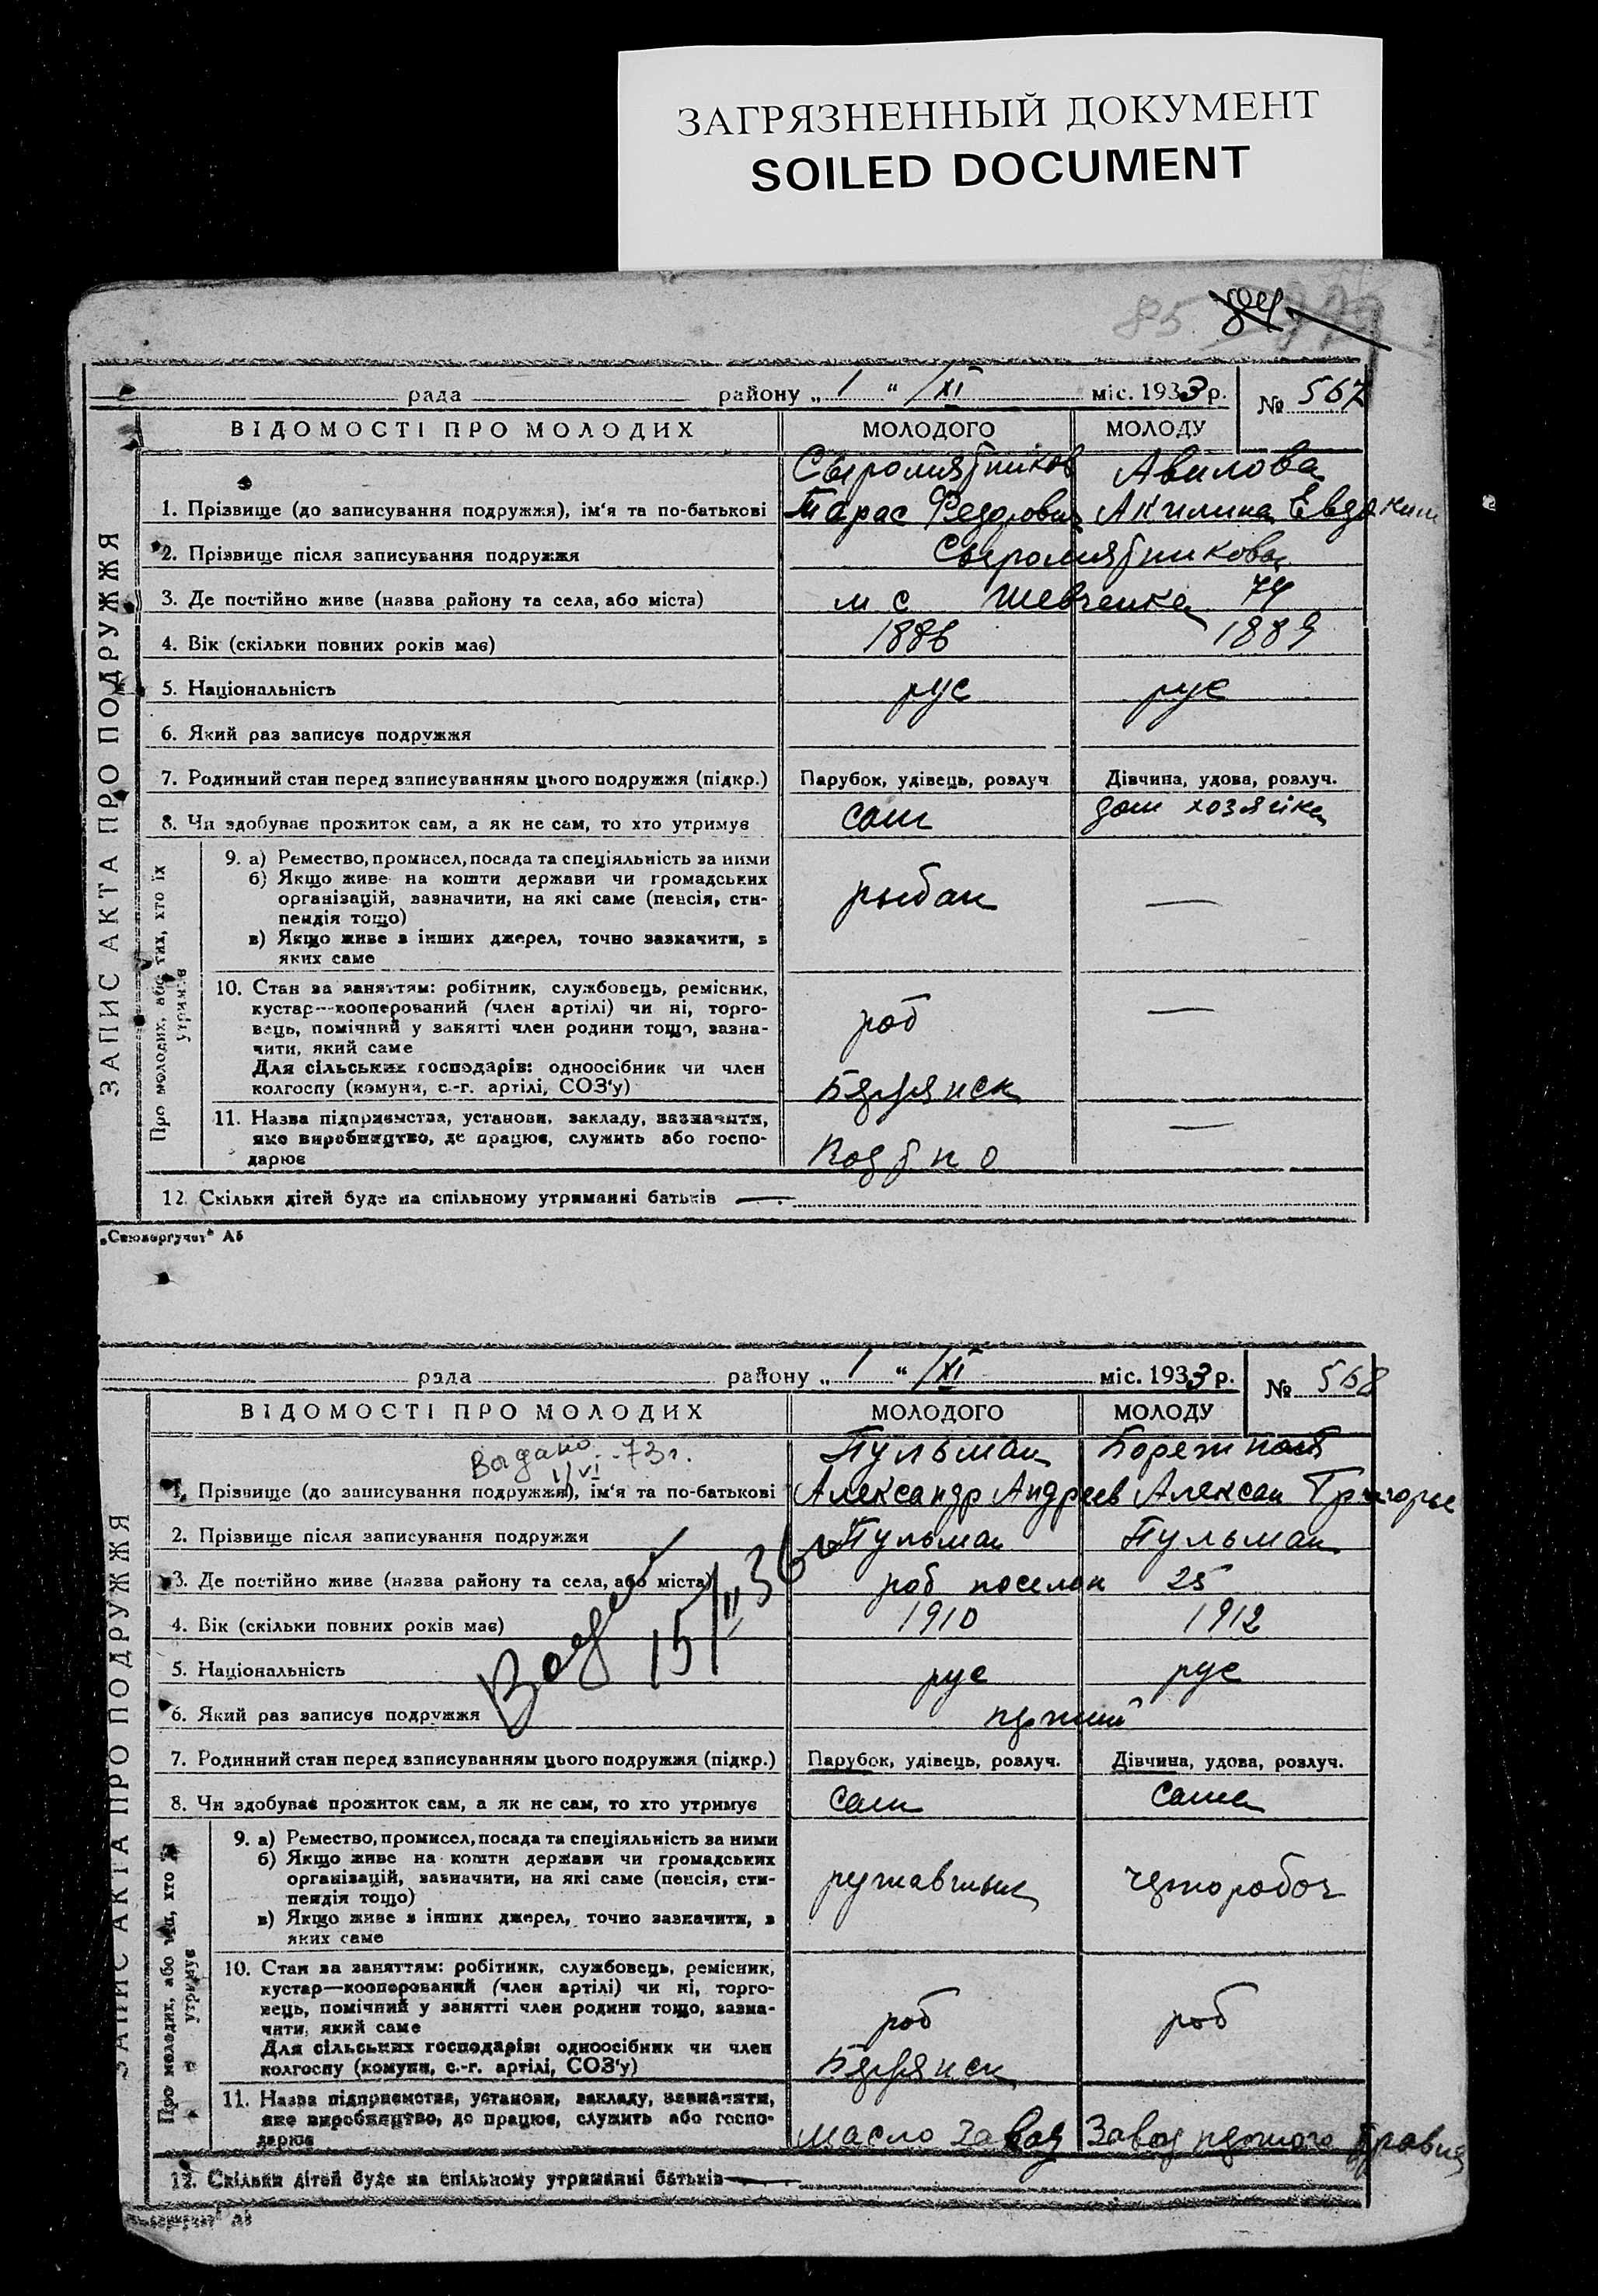 ЗАГРЯЗНЕННЫЙ ДОКУМЕНТ
SOILED DOCUMENT
85 84
рада района „ 1 “ /XI міс. 1933 р. № 567
ВІДОМОСТІ ПРО МОЛОДИХ МОЛОДОГО МОЛОДУ
Сыромятников Авилова
1. Прізвище (до записування подружжя), ім'я та по-батькові Тарас Федорович Акилина Евдоким
2. Прізвище після записування подружжя Сыромятникова
3. Де постійно живе (назва району та села, або міста) м с Шевченка 74
4. Вік (скільки повних років має) 1886 1889
5. Національність рус рус
6. Який раз записує подружжя
7. Родинний стан перед записуванням цього подружжя (підкр.) Парубок, удівець, розлуч Дівчина, удова, розлуч.
8. Чи здобуває прожиток сам, а як не сам, то хто утримує сам дом хозяйка
9. а) Ремество, промисел, посада та спеціяльність за ними
б) Якщо живе на кошти держави чи громадських
організацій, зазначити, на які саме (пенсія, сти-
пендія тощо) рыбак —
в) Якщо живе з інших джерел, точно зазначити, з
яких саме
10. Стан за заняттям: робітник, службовець, ремісник,
кустар—кооперований (член артілі) чи ні, торго-
вець, помічний у занятті член родини тощо, зазна-
чити, який саме роб —
Для сільських господарів: одноосібник чи член
колгоспу (комуни, с.-г. артілі, СОЗ'у) Бердянск
11. Назва підприємства, установи, закладу, зазначити,
яке виробництво, де працює, служить або госпо-
дарює —
12. Скільки дітей буде на спільному утриманні батьків —
ЗАПИС АКТА ПРО ПОДРУЖЖЯ
Про молодих, або тих, хто їх утримує
„Союзоргучет“ А5
рада району „ 1 “ /XI міс. 1933 р. № 568
ВІДОМОСТІ ПРО МОЛОДИХ МОЛОДОГО МОЛОДУ
Выдано 1/VI-73г. Пульман
1. Прізвище (до записування подружжя), ім'я та по-батькові Александр Андреев Алексан Григорье
2. Прізвище після записування подружжя Пульман Пульман
3. Де постійно живе (назва району та села, або міста) роб поселок 25
4. Вік (скільки повних років має) 1910 1912
15/II 36
5. Національність рус рус
6. Який раз записує подружжя первый
7. Родинний стан перед записуванням цього подружжя (підкр.) Парубок, удівець, розлуч. Дівчина, удова, розлуч.
8. Чи здобуває прожиток сам, а як не сам, то хто утримує сам сама
9. а) Ремество, промисел, посада та спеціяльність за ними
б) Якщо живе на кошти держави чи громадських
організацій, зазначити, на які саме (пенсія, сти-
пендія тощо) чернороboч
в) Якщо живе з інших джерел, точно зазначити, з
яких саме
10. Стан за заняттям: робітник, службовець, ремісник,
кустар—кооперований (член артілі) чи ні, торго-
вець, помічний у занятті член родини тощо, зазна-
чити, який саме роб роб
Для сільських господарів: одноосібник чи член
колгоспу (комуни, с.-г. артілі, СОЗ'у) Бердянск
11. Назва підприємства, установи, закладу, зазначити,
яке виробництво, де працює, служить або госпо-
дарює масло завод Завод первого
12. Скільки дітей буде на спільному утриманні батьків —
ЗАПИС АКТА ПРО ПОДРУЖЖЯ
Про молодих, або тих, хто їх утримує